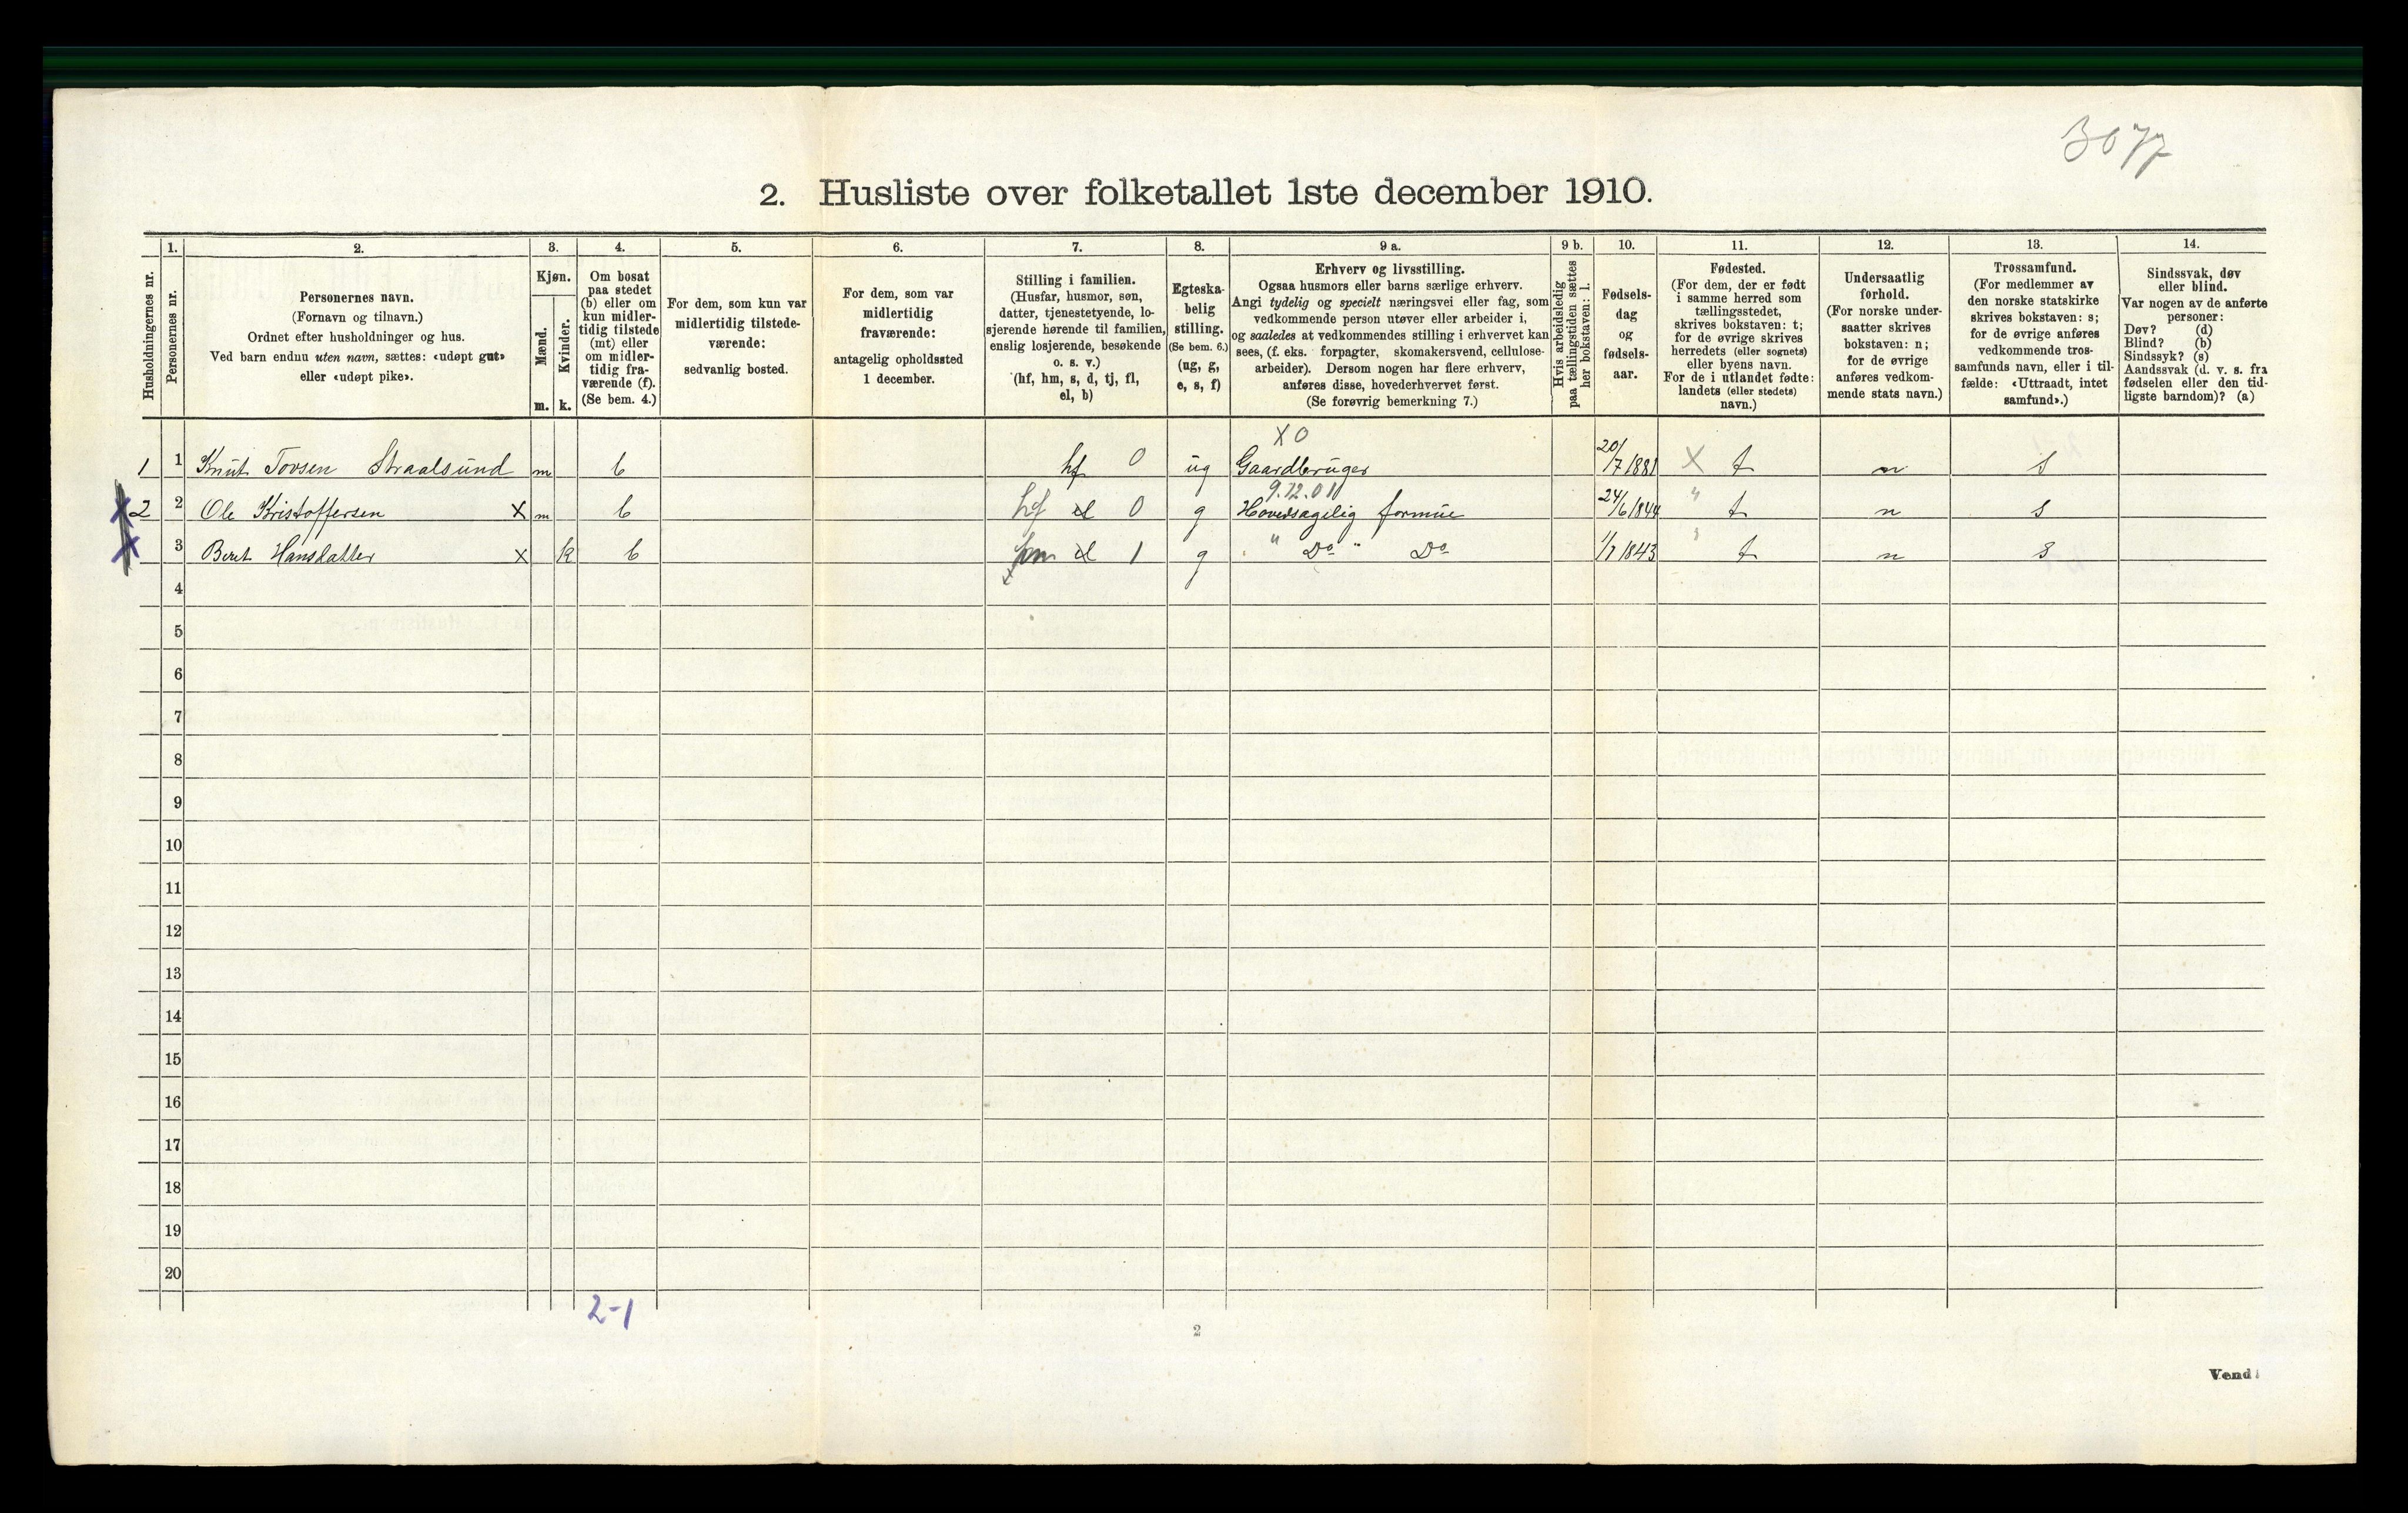 3077
2. Husliste over folketallet 1ste december 1910.
Husholdningernes nr.
1.
Personernes nr.
2.
Personernes navn.
(Fornavn og tilnavn.)
Ordnet efter husholdninger og hus.
Ved barn endnu uten navn, sættes: «udøpt gut»
eller «udøpt pike».
3.
Kjøn.
Mænd.
m.
Kvinder.
k.
4.
Om bosat
paa stedet
(b) eller om
kun midler-
tidig tilstede
(mt) eller
om midler-
tidig fra-
værende (f).
(Se bem. 4.)
5.
For dem, som kun var
midlertidig tilstede-
værende:
sedvanlig bosted.
6.
For dem, som var
midlertidig
fraværende:
antagelig opholdssted
1 december.
7.
Stilling i familien.
(Husfar, husmor, søn,
datter, tjenestetyende, lo-
sjerende hørende til familien,
enslig losjerende, besøkende
o. s. v.)
(hf, hm, s, d, tj, fl,
el, b)
8.
Egteska-
belig
stilling.
(Se bem. 6.)
(ug, g,
e, s, f)
9 a.
Erhverv og livsstilling.
Ogsaa husmors eller barns særlige erhverv.
Angi tydelig og specielt næringsvei eller fag, som
vedkommende person utøver eller arbeider i,
og saaledes at vedkommendes stilling i erhvervet kan
sees, (f. eks. forpagter, skomakersvend, cellulose-
arbeider). Dersom nogen har flere erhverv,
anføres disse, hovederhvervet først.
(Se forøvrig bemerkning 7.)
9 b.
Hvis arbeidsledig
paa tællingstiden sættes
her bokstaven: l.
10.
Fødsels-
dag
og
fødsels-
aar.
11.
Fødested.
(For dem, der er født
i samme herred som
tællingsstedet,
skrives bokstaven: t;
for de øvrige skrives
herredets (eller sognets)
eller byens navn.
For de i utlandet fødte:
landets (eller stedets)
navn.)
12.
Undersaatlig
forhold.
(For norske under-
saatter skrives
bokstaven: n;
for de øvrige
anføres vedkom-
mende stats navn.)
13.
Trossamfund.
(For medlemmer av
den norske statskirke
skrives bokstaven: s;
for de øvrige anføres
vedkommende tros-
samfunds navn, eller i til-
fælde: «Uttraadt, intet
samfund».)
14.
Sindssvak, døv
eller blind.
Var nogen av de anførte
personer:
Døv? (d)
Blind? (b)
Sindssyk? (s)
Aandssvak (d. v. s. fra
fødselen eller den tid-
ligste barndom)? (a)
X0
1 1 Knut Tovsen Straalsund m b hf 0 ug Gaardbruger 20/7 1881 X t n s
9.12.01
X 2 2 Ole Kristoffersen X m b hf el 0 g Hovedsagelig formue 24/6 1844 " t n s
X 3 Berit Hansdatter X k b hm el 1 g " Do " Do 1/7 1843 " t n s
4
5
6
7
8
9
10
11
12
13
14
15
16
17
18
19
20
2-1
2
Vend!